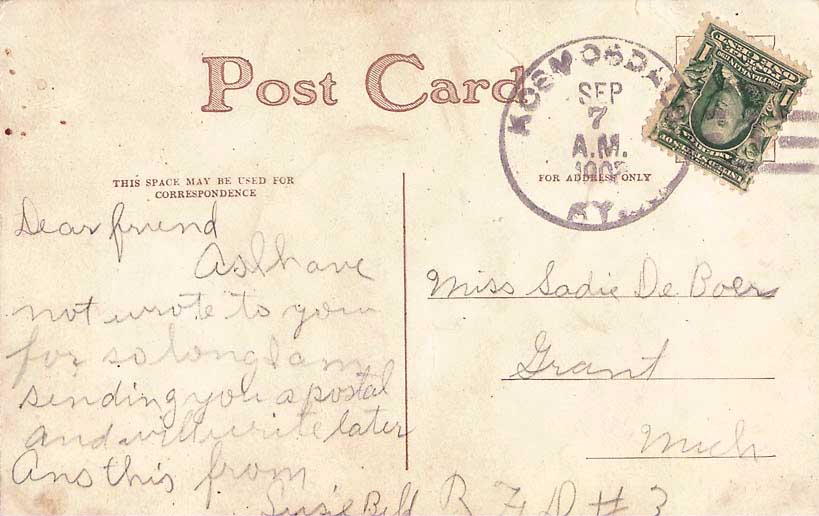 Post Card
KOSMOSDALE
SEP
7
A.M.
KY.
THIS SPACE MAY BE USED FOR
CORRESPONDENCE
FOR ADDRESS ONLY
Dear friend
As I have
not wrote to you
for so long I am
sending you a postal
and will write later
Ans this from
Susie
R F D # 3
Miss Sadie De Boer
Grant
Mich
1
1